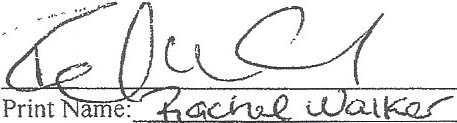 Print Name: Rachel Walker